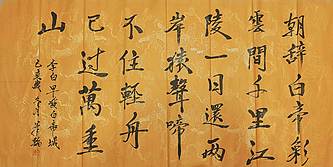 朝辞白帝彩
雲間千里江
陵一日還兩
岸猿聲啼
不住輕舟
已過萬重
山
李白早發白帝城
己亥